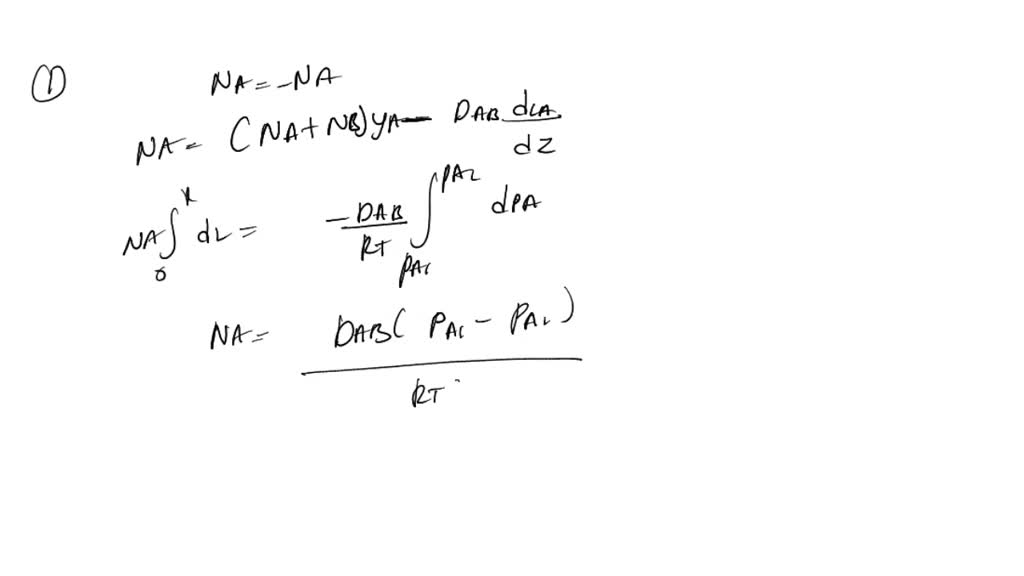 ①
NA = -NA
NA = (NA + NB) yA - DAB dCA/dZ
NA ∫₀ˣ dL = -DAB/RT ∫_{PA1}^{PA2} dPA
NA = DAB (PA1 - PA2) / RT